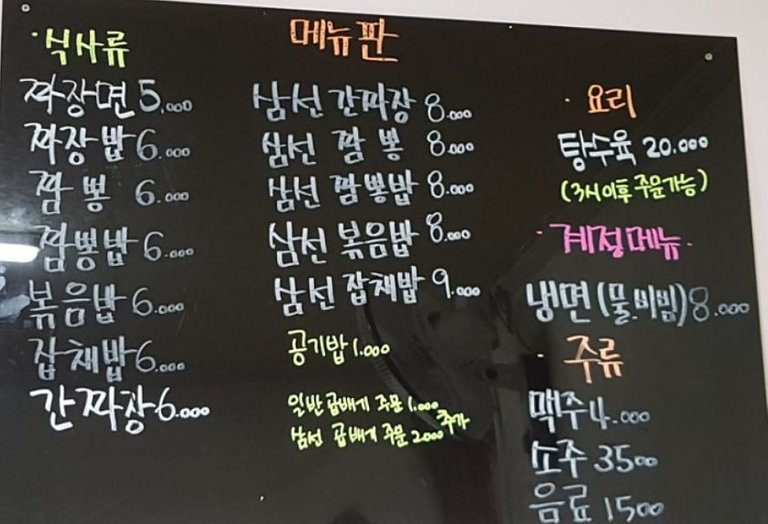 메뉴판
·식사류
짜장면 5.000
짜장밥 6.000
짬뽕 6.000
짬뽕밥 6.000
볶음밥 6.000
잡채밥 6.000
간짜장 6.000
삼선 간짜장 8.000
삼선 짬뽕 8.000
삼선 짬뽕밥 8.000
삼선 볶음밥 8.000
삼선 잡채밥 9.000
공기밥 1.000
일반 곱배기 주문 1.000
삼선 곱배기 주문 2000 추가
·요리
탕수육 20.000
(3시이후 주문가능)
·계절메뉴·
냉면(물.비빔) 8.000
·주류
맥주 4.000
소주 3500
음료 1500